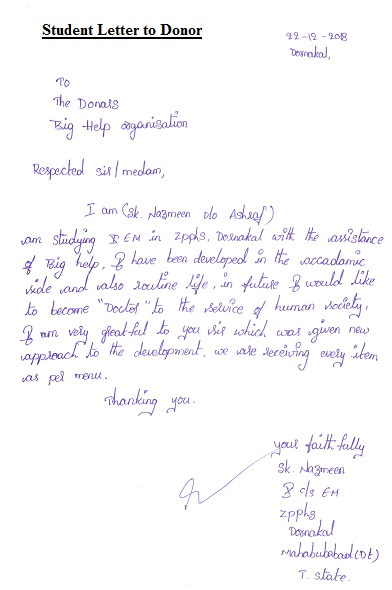 Student Letter to Donor
22-12-2018
Dornakal,
To
The Donars
Big Help organisation
Respected sir/medam,
I am (Sk. Nazmeen D/o Ashraf)
am studying X EM in zpphs, Dornakal with the assistance
of Big help, I have been developed in the accadamic
side and also routine life, in future I would like
to become "Doctor" to the service of human society.
I am very greatful to you sir which was given new
approach to the development, we are receiving every item
as per menu.
Thanking you.
your faithfully
Sk. Nazmeen
X c/s EM
zpphs
Dornakal
Mahabubabad(Dt)
T. state.